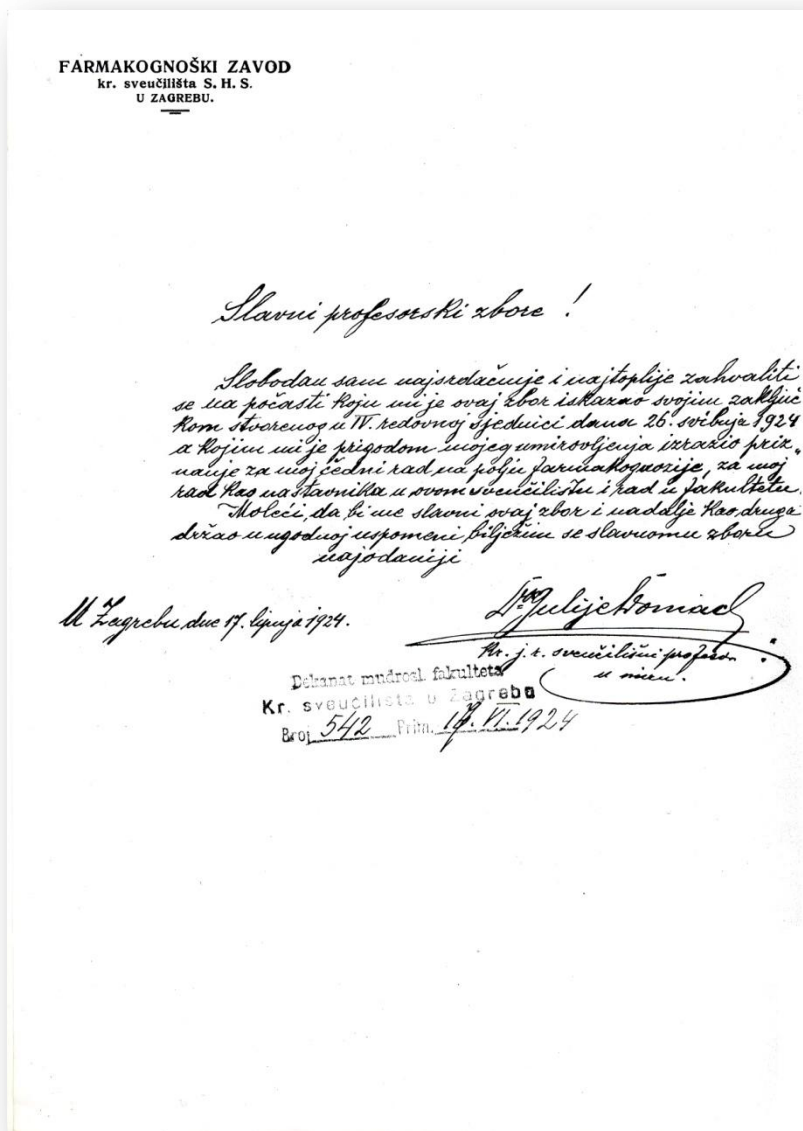 FARMAKOGNOŠKI ZAVOD
kr. sveučilišta S. H. S.
U ZAGREBU.
Slavni profesorski zbore !
Slobodan sam najsrdačnije i najtoplije zahvaliti
se na počasti koju mi je ovaj zbor iskazao svojim zaključ
kom stvorenog u IV. redovnoj sjednici dana 26. svibnja 1924
a kojim mi je prigodom mojeg umirovljenja izrazio priz„
nanje za moj čedni rad na polju farmakognozije, za moj
rad kao nastavnika u ovom sveučilištu i rad u fakultetu.
Moleći, da bi me slavni ovaj zbor i nadalje kao druga
držao u ugodnoj uspomeni, bilježim se slavnomu zboru
najodaniji
U Zagrebu dne 17. lipnja 1924.
Dr. Julije Domac
Kr. j. r. sveučilišni profesor
u miru.
Dekanat mudrosl. fakulteta
Kr. sveučilista u Zagrebu
Broj 542 Prim. 17. VI. 1924